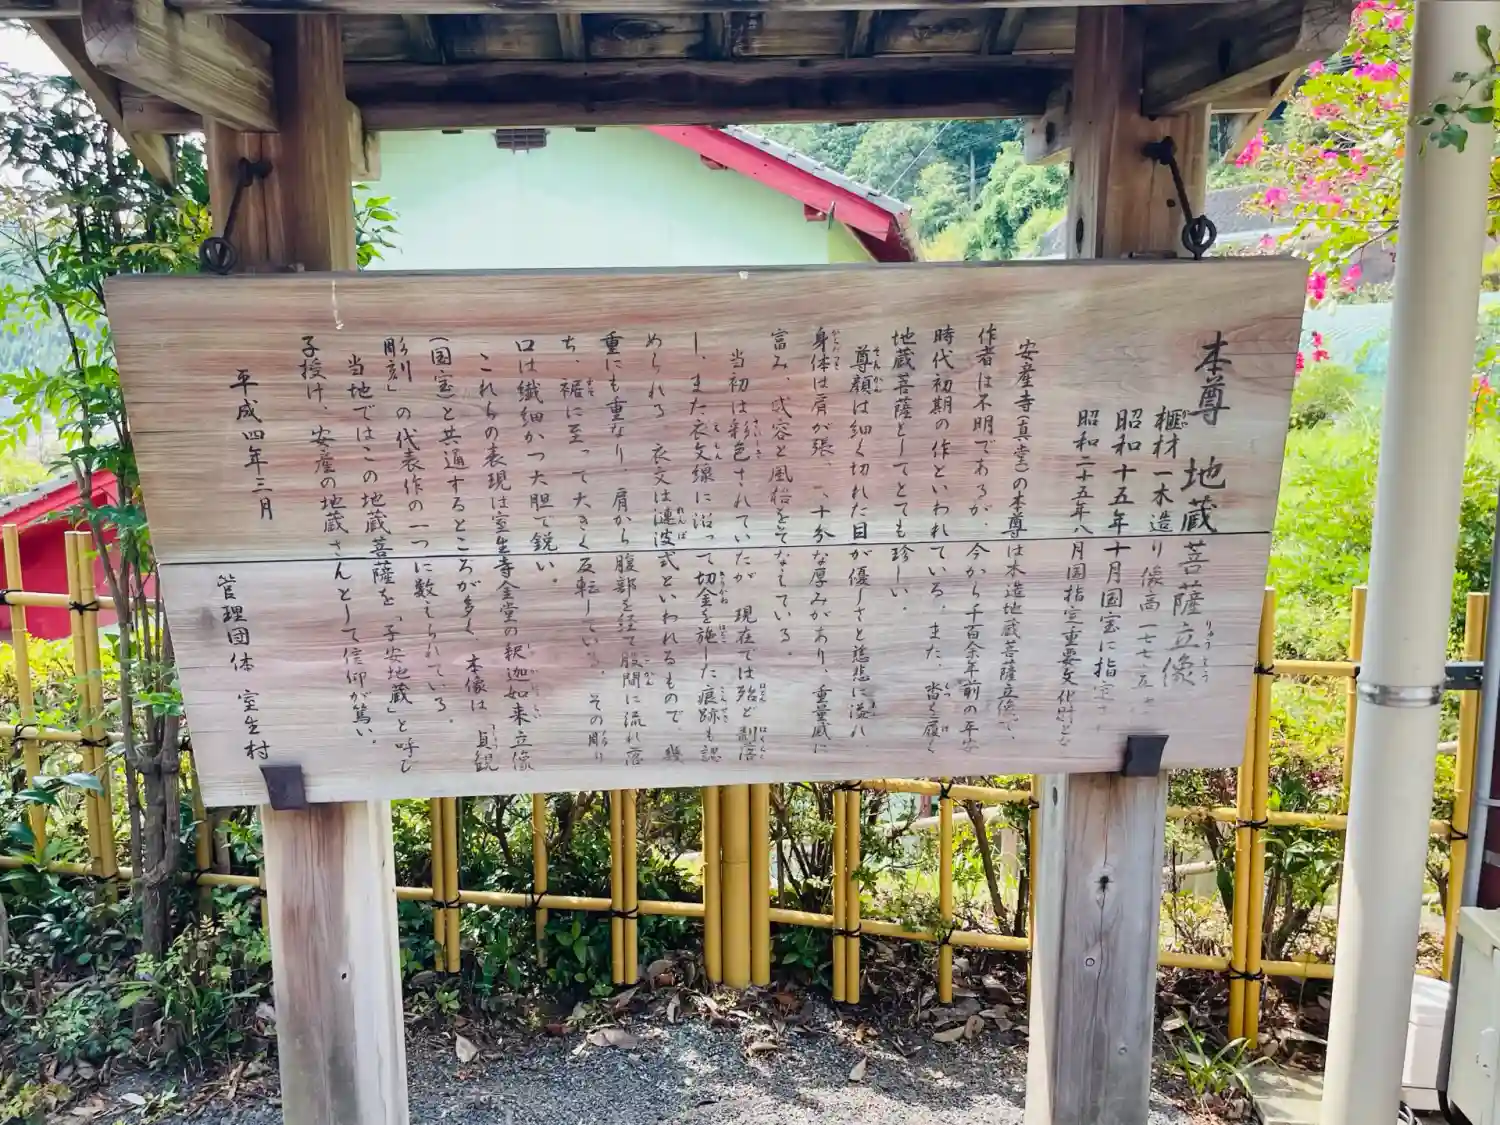 本尊 地蔵菩薩立像
榧材一木造り像高一七七・五
昭和十五年十月国宝に指定
昭和二十五年八月国指定重要文化財とな
安産寺(真堂)の本尊は木造地蔵菩薩立像で、
作者は不明であるが、今から千百余年前の平安
時代初期の作といわれている。また、沓を履く
地蔵菩薩としてとても珍しい。
尊顔は細く切れた目が優しさと慈悲に溢れ、
身体は肩が張、十分な厚みがあり、重量感に
富み、威容と風格をそなえている。
当初は彩色されていたが 現在では殆ど剥落
し、また衣文線に沿って切金を施した痕跡も認
められる 衣文は漣波式といわれるもので、幾
重にも重なり 肩から腹部を経て股間に流れ落
ち、裾に至って大きく反転している。その彫り
口は繊細かつ大胆で鋭い。
これらの表現は室生寺金堂の釈迦如来立像
(国宝)と共通するところが多く、本像は「貞観
彫刻」の代表作の一つに数えられている。
当地ではこの地蔵菩薩を「子安地蔵」と呼び
子授け、安産の地蔵さんとして信仰が篤い。
平成四年三月
管理団体 室生村